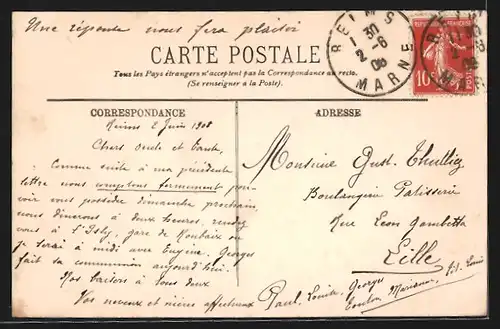 Une réponse nous fera plaisir
CARTE POSTALE
Tous les Pays étrangers n'acceptent pas la Correspondance au recto.
(Se renseigner à la Poste).
REIMS
1 30
2-6
08
MARNE
10
POSTES
CORRESPONDANCE
Reims 2 Juin 1908
Chers Oncle et tante,
Comme suite à ma précédente
lettre nous comptons fermement pou-
voir vous posséder dimanche prochain
nous dînerons à deux heures, rendez
vous à l'Isly, gare de Roubaix ou
je serai à midi avec Eugène. Georges
fait sa communion aujourd'hui.
Nos baisers à tous deux
Vos neveux et nièces affectueux
Paul, Louise, Georges
Tonton, Marianne, P. Louis
ADRESSE
Monsieur Gust. Thullig
Boulangerie Patisserie
Rue Leon Gambetta
Lille